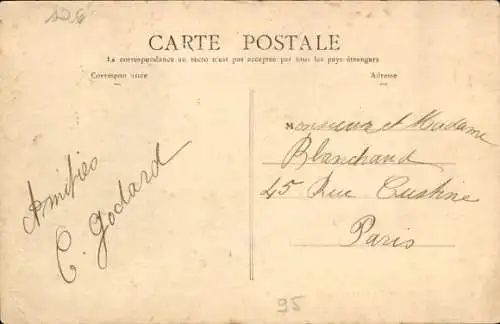 CARTE POSTALE
La correspondance au recto n'est pas acceptée par tous les pays étrangers
Correspondance
Adresse
Amitiés
C. Godard
Monsieur et Madame
Blanchard
45 Rue Custine
Paris
95